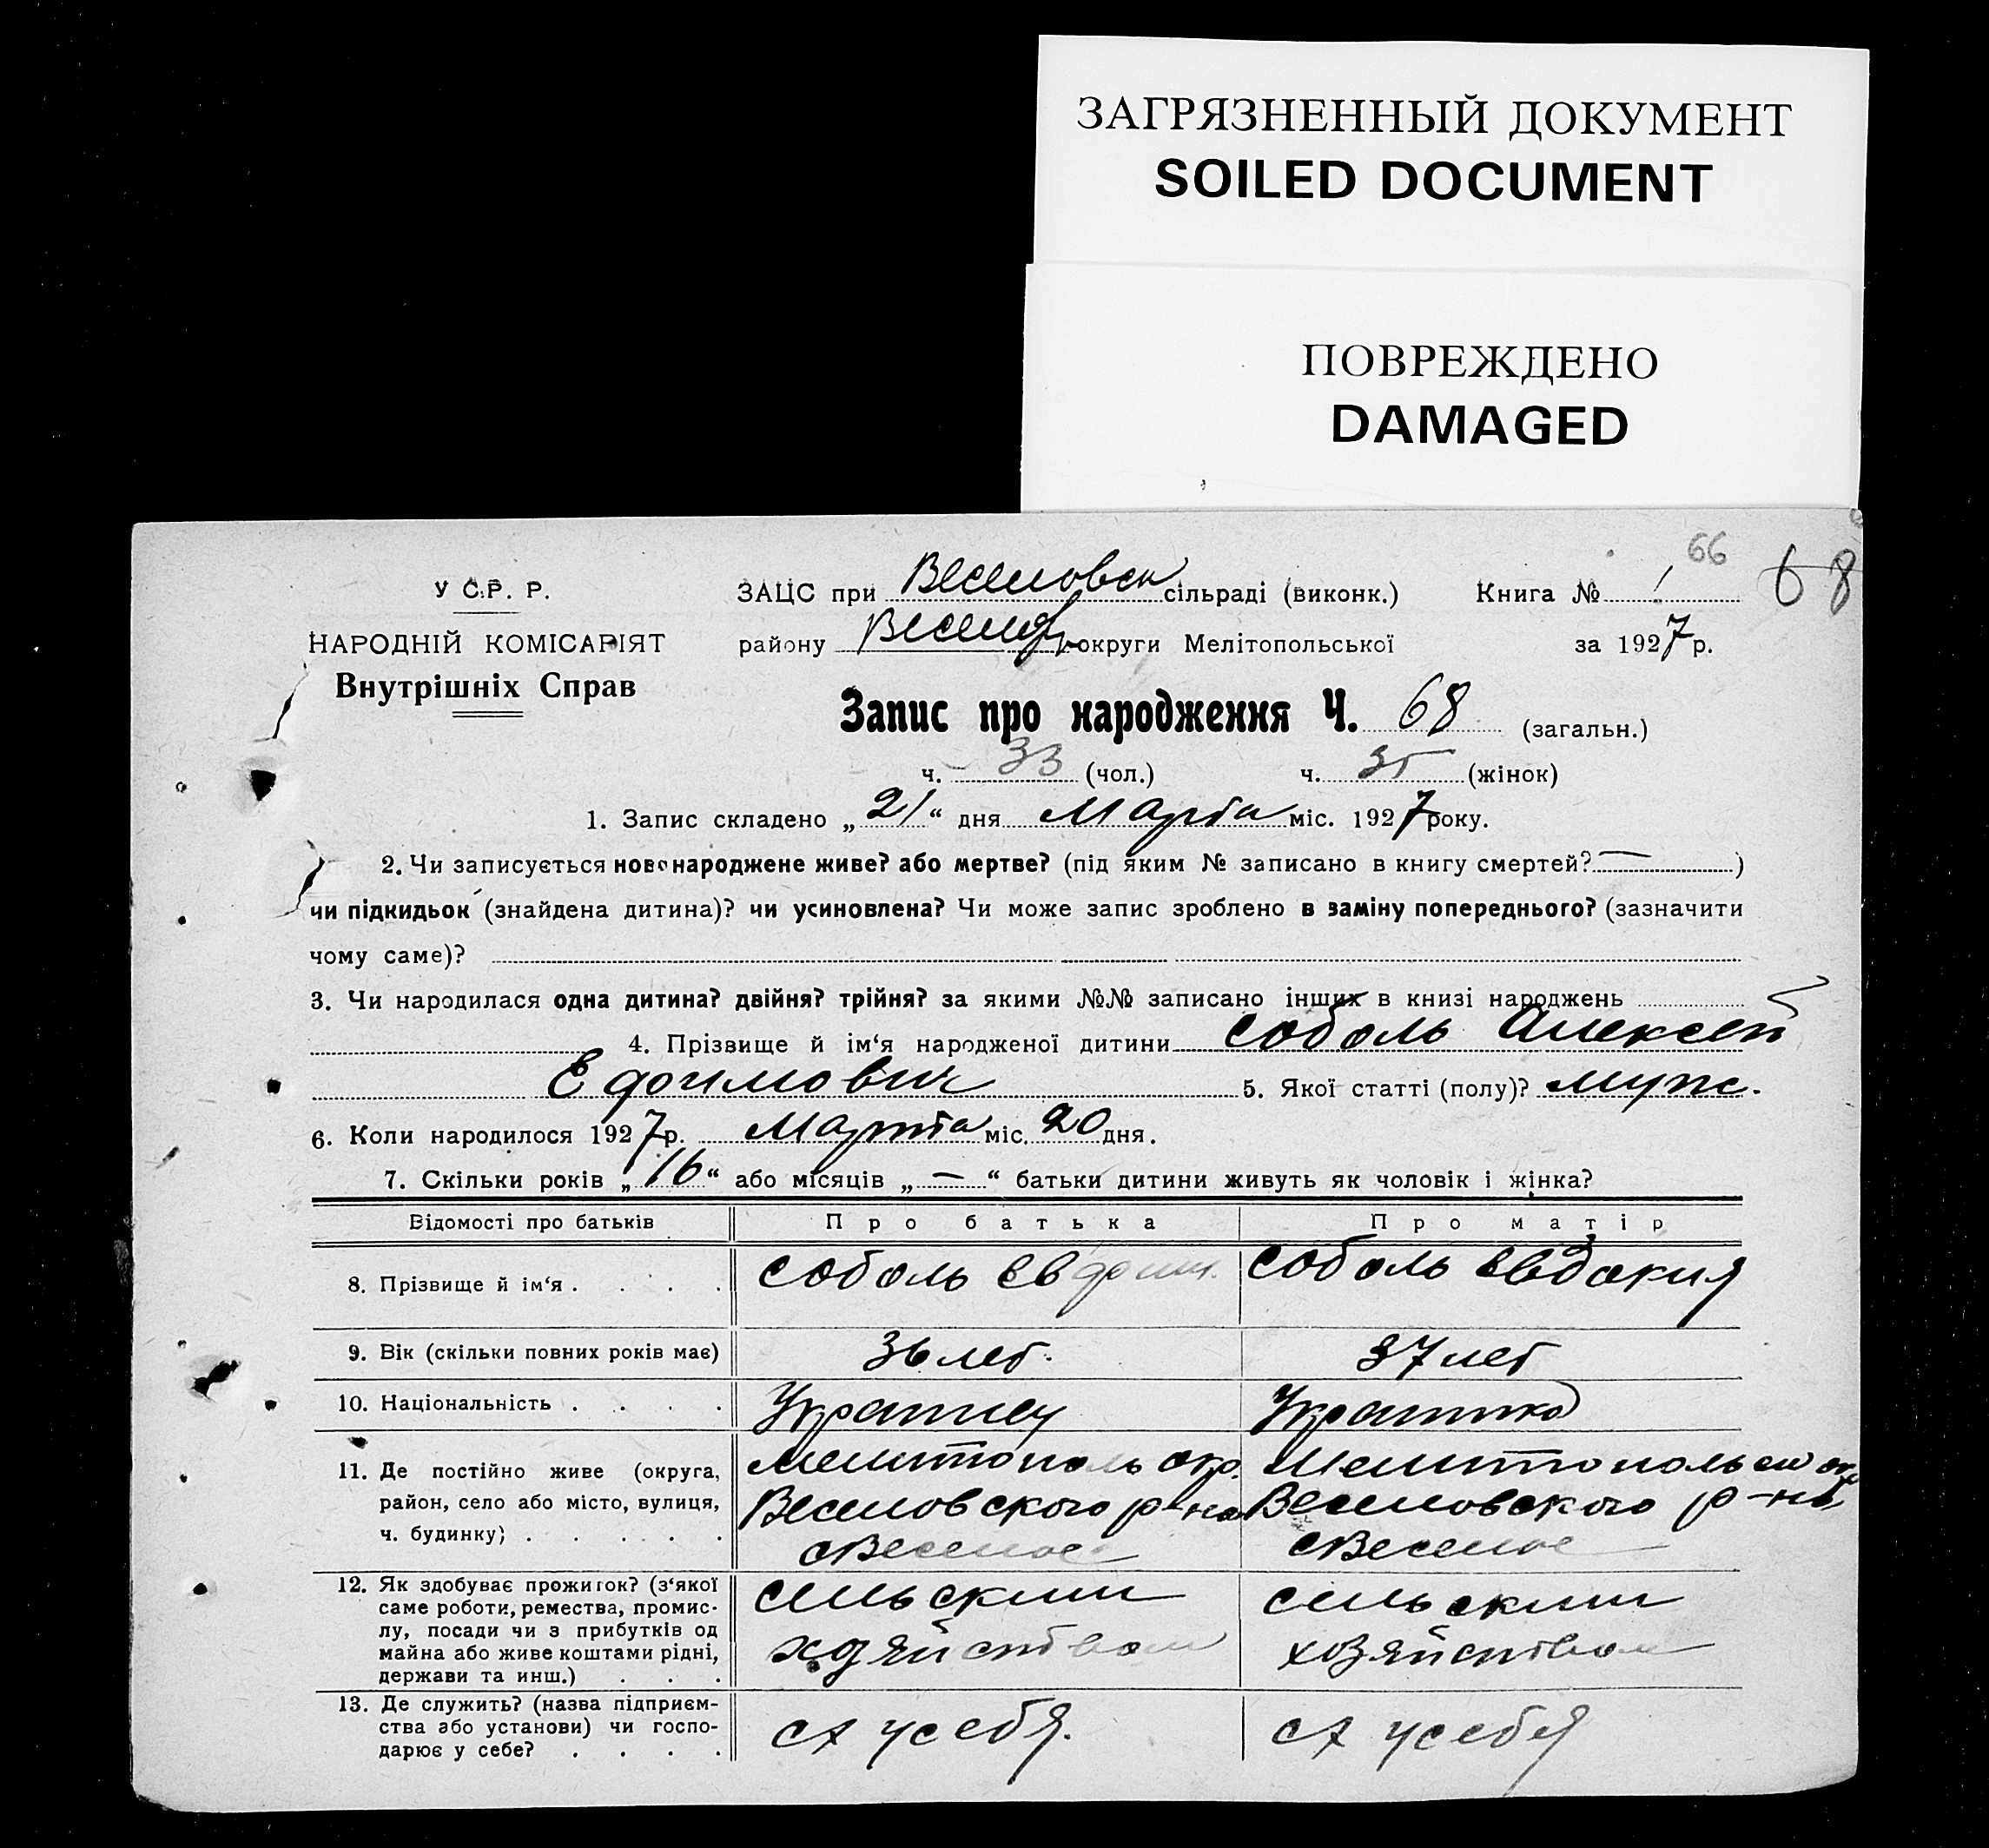 ЗАГРЯЗНЕННЫЙ ДОКУМЕНТ
SOILED DOCUMENT
ПОВРЕЖДЕНО
DAMAGED
66 68
У С.Р. Р.
НАРОДНІЙ КОМІСАРІЯТ
Внутрішніх Справ
ЗАЦС при Веселовск сільраді (виконк.) Книга № 1
району Весел округи Мелітопольської за 1927 р.
Запис про народження Ч. 68 (загальн.)
ч. 33 (чол.) ч. 35 (жінок)
1. Запис складено „21“ дня Марта міс. 1927 року.
2. Чи записується новонароджене живе? або мертве? (під яким № записано в книгу смертей? — )
чи підкидьок (знайдена дитина)? чи усиновлена? Чи може запис зроблено в заміну попереднього? (зазначити
чому саме)?
3. Чи народилася одна дитина? двійня? трійня? за якими №№ записано інших в книзі народжень
4. Прізвище й ім‘я народженої дитини Соболь Алексей
Ефдокимович 5. Якої статті (полу)? муж.
6. Коли народилося 1927 р. Марта міс. 20 дня.
7. Скільки років „16“ або місяців „—“ батьки дитини живуть як чоловік і жінка?
Відомості про батьків Про батька Про матір
8. Прізвище й ім‘я . . . . Соболь Соболь Евдокия
9. Вік (скільки повних років має) 36 лет. 37 лет
10. Національність . . . . Украинец Украинка
11. Де постійно живе (округа, Мелитополь окр. Мелитопольск окр
район, село або місто, вулиця, Веселовского р-на Веселовского р-на
ч. будинку) . . . . . с Веселое с Веселое
12. Як здобуває прожиток? (з‘якої сельским сельским
саме роботи, ремества, промис-
лу, посади чи з прибутків од хозяйством хозяйством
майна або живе коштами рідні,
держави та инш.) . . .
13. Де служить? (назва підприєм-
ства або установи) чи госпо- сх у себя. сх у себя
дарює у себе? . . . .